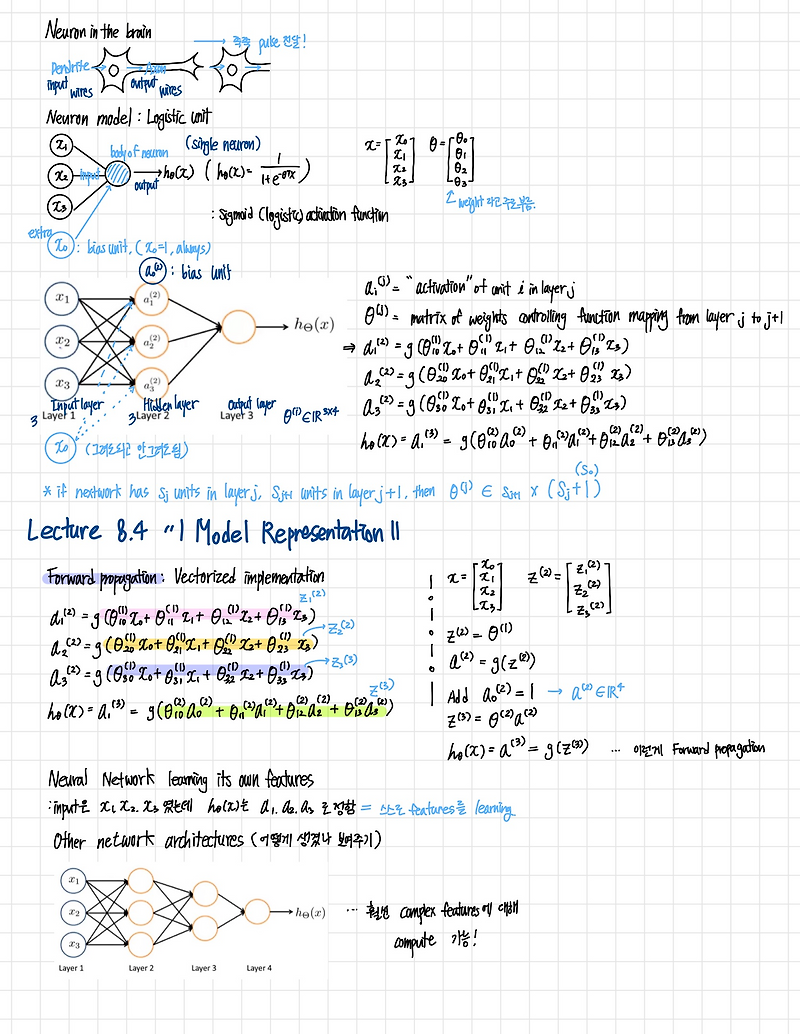 Neuron in the brain
→ 쭉쭉 pulse 전달!
Dendrite Axon
input wires output wires
Neuron model : Logistic unit
x₁ x₂ x₃
body of neuron (single neuron)
input output
→ hθ(x) ( hθ(x) = 1 / (1+e^-θᵀx) )
: Sigmoid (logistic) activation function
extra x₀ : bias unit, (x₀=1, always)
x = [x₀ x₁ x₂ x₃] θ = [θ₀ θ₁ θ₂ θ₃]
weight 라고 주로 부름.
: bias unit
x₁ x₂ x₃ a₁⁽²⁾ a₂⁽²⁾ a₃⁽²⁾ → hΘ(x)
Input layer Hidden layer Output layer
3 Layer 1 3 Layer 2 Layer 3 θ⁽¹⁾∈ℝ³ˣ⁴
x₀ (그려도되고 안그려도됨)
aᵢ⁽ʲ⁾ = "activation" of unit i in layer j
θ⁽ʲ⁾ = matrix of weights controlling function mapping from layer j to j+1
⇒ a₁⁽²⁾ = g(θ₁₀⁽¹⁾x₀ + θ₁₁⁽¹⁾x₁ + θ₁₂⁽¹⁾x₂ + θ₁₃⁽¹⁾x₃)
a₂⁽²⁾ = g(θ₂₀⁽¹⁾x₀ + θ₂₁⁽¹⁾x₁ + θ₂₂⁽¹⁾x₂ + θ₂₃⁽¹⁾x₃)
a₃⁽²⁾ = g(θ₃₀⁽¹⁾x₀ + θ₃₁⁽¹⁾x₁ + θ₃₂⁽¹⁾x₂ + θ₃₃⁽¹⁾x₃)
hθ(x) = a₁⁽³⁾ = g(θ₁₀⁽²⁾a₀⁽²⁾ + θ₁₁⁽²⁾a₁⁽²⁾ + θ₁₂⁽²⁾a₂⁽²⁾ + θ₁₃⁽²⁾a₃⁽²⁾)
(S₀)
* if nextwork has Sj units in layer j, Sj+1 units in layer j+1, then θ⁽ʲ⁾ ∈ Sj+1 × (Sj+1)
Lecture 8.4 ~ | Model Representation II
Forward propagation : Vectorized implementation
z₁⁽²⁾
a₁⁽²⁾ = g(θ₁₀⁽¹⁾x₀ + θ₁₁⁽¹⁾x₁ + θ₁₂⁽¹⁾x₂ + θ₁₃⁽¹⁾x₃)
a₂⁽²⁾ = g(θ₂₀⁽¹⁾x₀ + θ₂₁⁽¹⁾x₁ + θ₂₂⁽¹⁾x₂ + θ₂₃⁽¹⁾x₃) → z₂⁽²⁾
a₃⁽²⁾ = g(θ₃₀⁽¹⁾x₀ + θ₃₁⁽¹⁾x₁ + θ₃₂⁽¹⁾x₂ + θ₃₃⁽¹⁾x₃) → z₃⁽³⁾
z⁽³⁾
hθ(x) = a₁⁽³⁾ = g(θ₁₀⁽²⁾a₀⁽²⁾ + θ₁₁⁽²⁾a₁⁽²⁾ + θ₁₂⁽²⁾a₂⁽²⁾ + θ₁₃⁽²⁾a₃⁽²⁾)
x = [x₀ x₁ x₂ x₃] z⁽²⁾ = [z₁⁽²⁾ z₂⁽²⁾ z₃⁽²⁾]
z⁽²⁾ = θ⁽¹⁾
a⁽²⁾ = g(z⁽²⁾)
Add a₀⁽²⁾ = 1 → a⁽²⁾∈ℝ⁴
z⁽³⁾ = θ⁽²⁾a⁽²⁾
hθ(x) = a⁽³⁾ = g(z⁽³⁾) … 이런게 Forward propagation
Neural Network learning its own features
: input은 x₁, x₂, x₃ 였는데 hθ(x)는 a₁, a₂, a₃ 로 정함 = 스스로 features를 learning
Other network architectures (어떻게 생겼나 보여주기)
x₁ x₂ x₃ → hΘ(x)
Layer 1 Layer 2 Layer 3 Layer 4
… 훨씬 complex features에 대해
compute 가능!